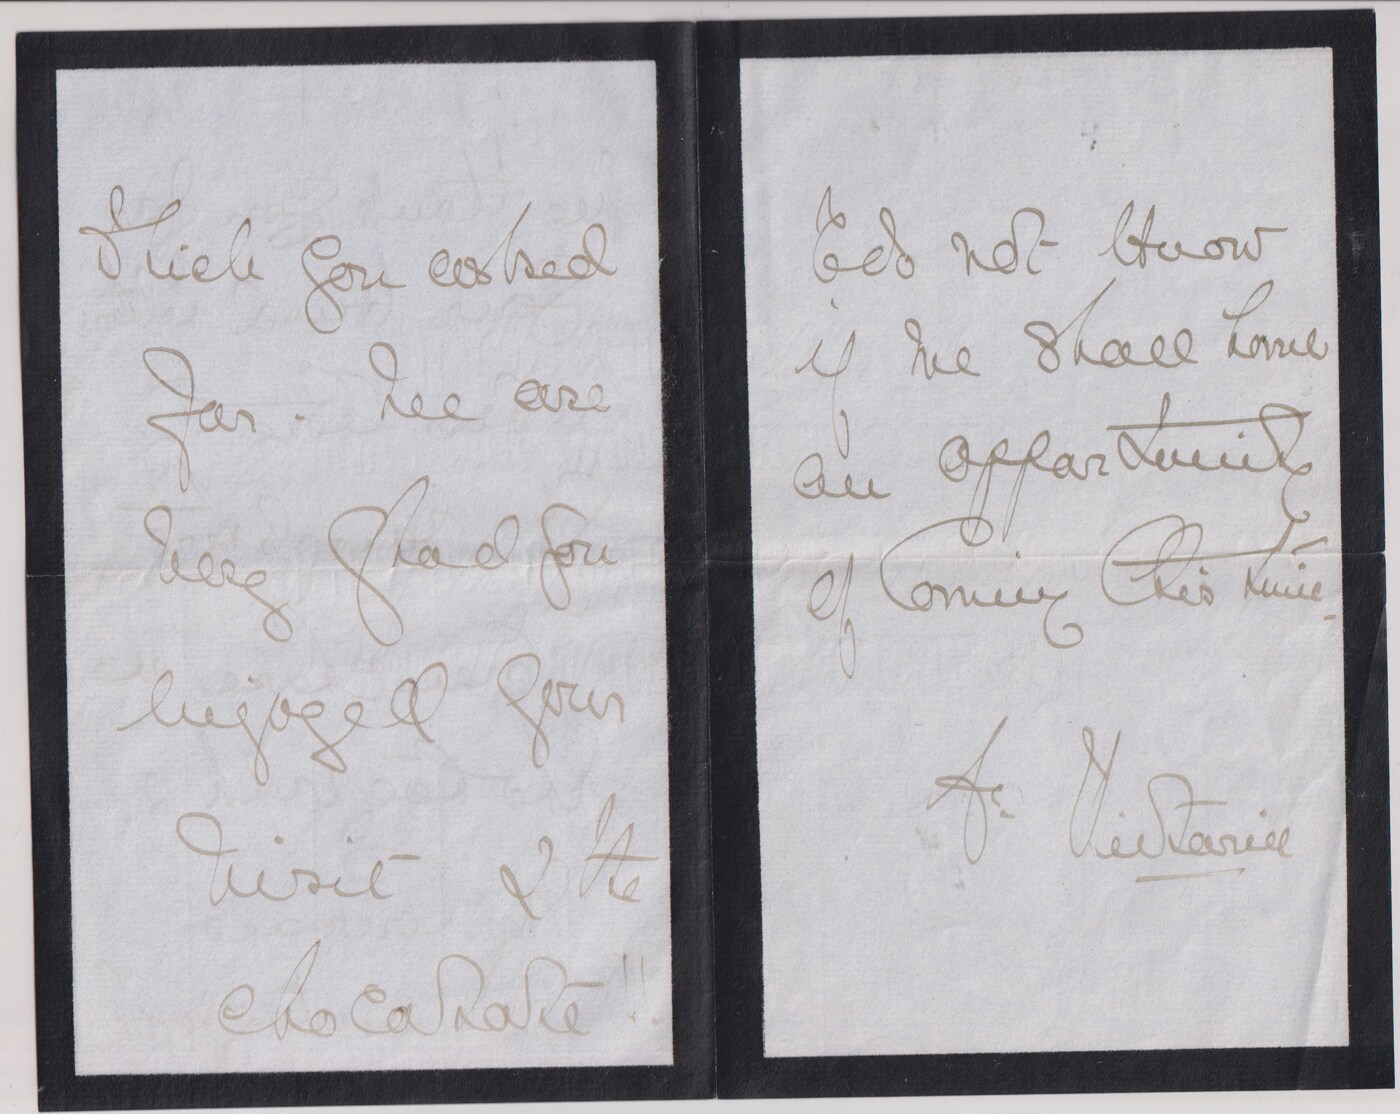 which you asked
for. We are
very glad you
enjoyed your
visit & the
chocolate!!
I do not know
if we shall have
an opportunity
of coming this time.
A. Victoria